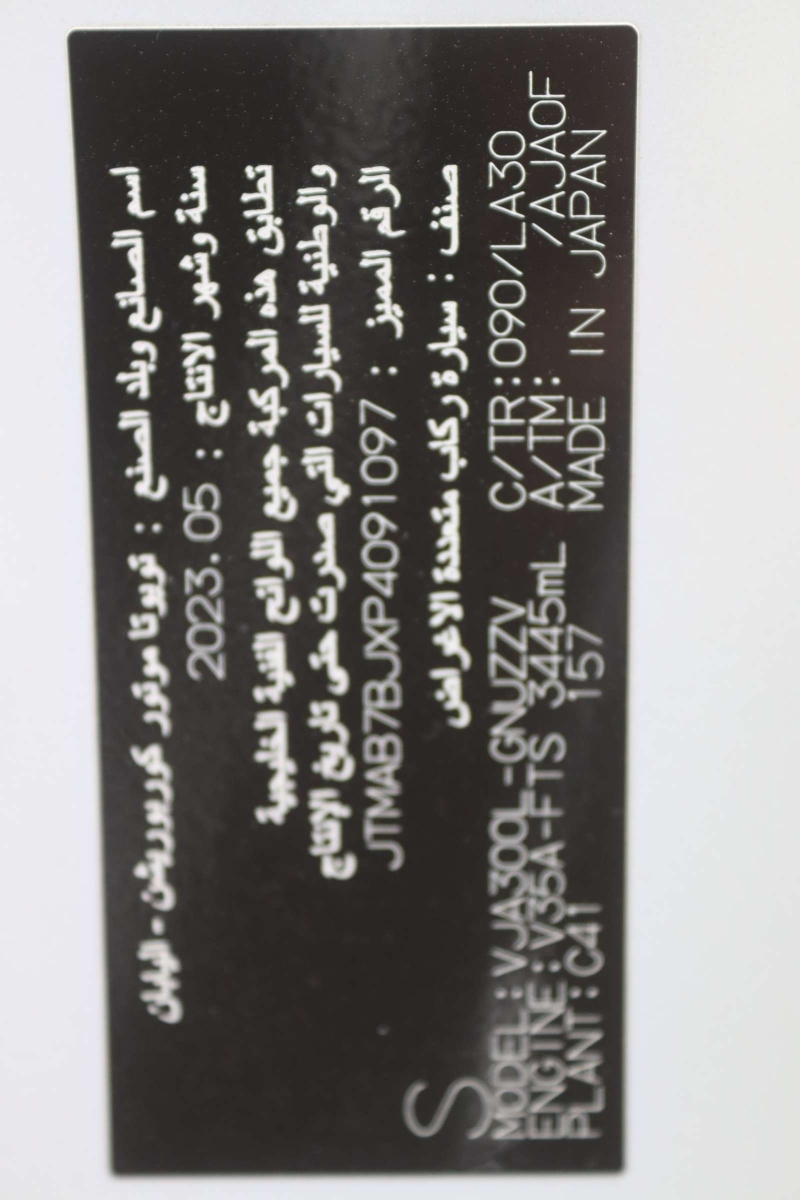 اسم الصانع وبلد الصنع : تويوتا موتور كوربوريشن - اليابان
سنة وشهر الانتاج : 2023.05
تطابق هذه المركبة جميع اللوائح الفنية الخليجية
والوطنية للسيارات التي صدرت حتى تاريخ الإنتاج
الرقم المميز : JTMAB7BJXP4091097
صنف : سيارة ركاب متعددة الاغراض
S
MODEL:VJA300L-GNUZZV C/TR:090/LA30
ENGINE:V35A-FTS 3445mL A/TM: /AJA0F
PLANT:C41 157 MADE IN JAPAN